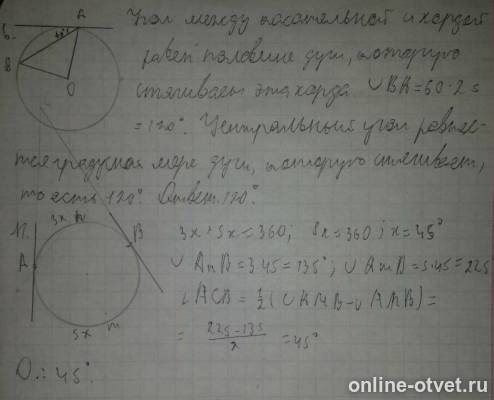 6.
A
B
O
Угол между касательной и хордой
равен половине дуги, которую
стягивает эта хорда ∪BK=60·2=
=120°. Центральный угол равняет-
ся градусная мере дуги, которую стягивает,
то есть 120°. Ответ: 120°.
11.
3x n
A
B
5x m
3x+5x=360; 8x=360; x=45°
∪AnB=3·45=135°; ∪AmB=5·45=225
∠ACB=½(∪AmB-∪AnB)=
= (225-135)/2 =45°
O.: 45°.
online-otvet.ru